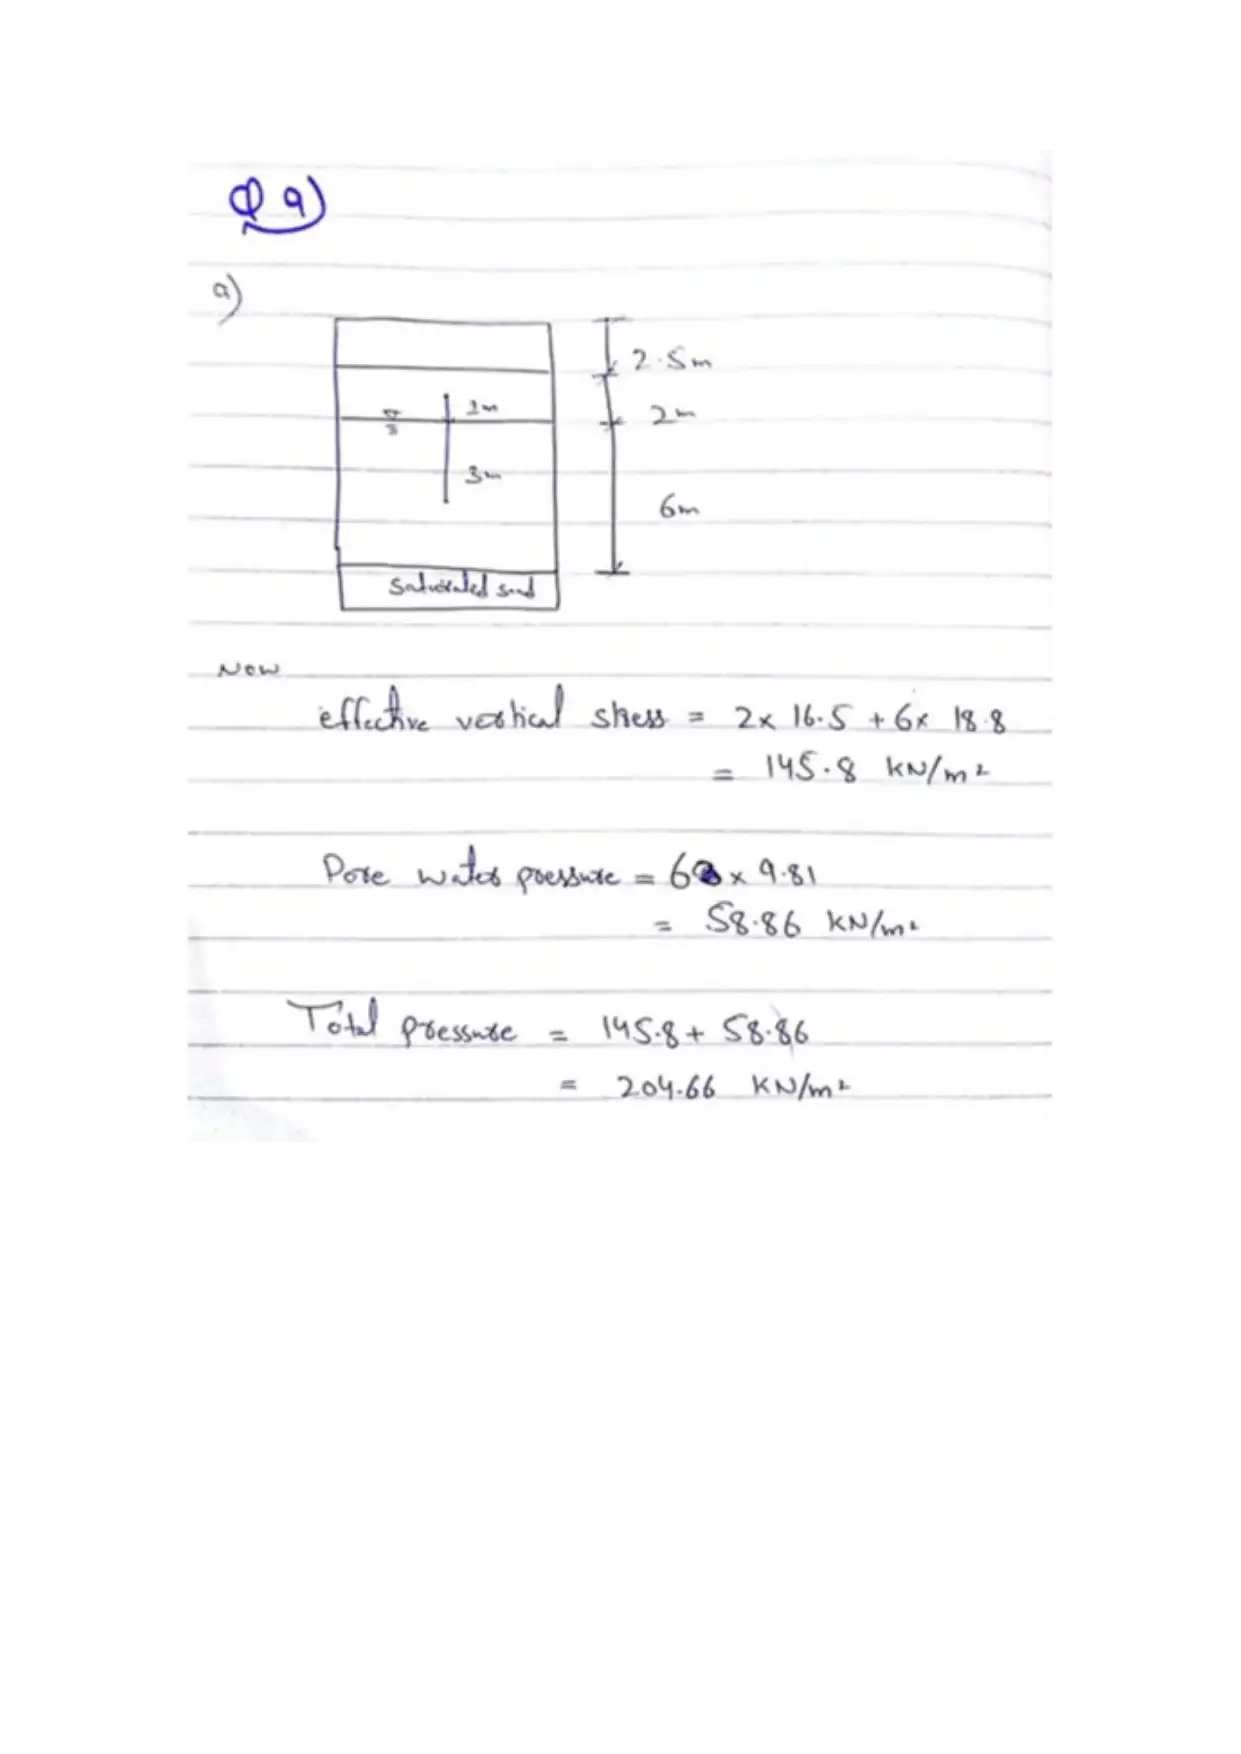 Q 9)
a)
2.5m
1m
2m
3m
6m
Saturated sand
Now
effective vertical stress = 2x 16.5 + 6x 18.8
= 145.8 KN/m²
Pore water pressure = 6 x 9.81
= 58.86 KN/m²
Total pressure = 145.8 + 58.86
= 204.66 KN/m²